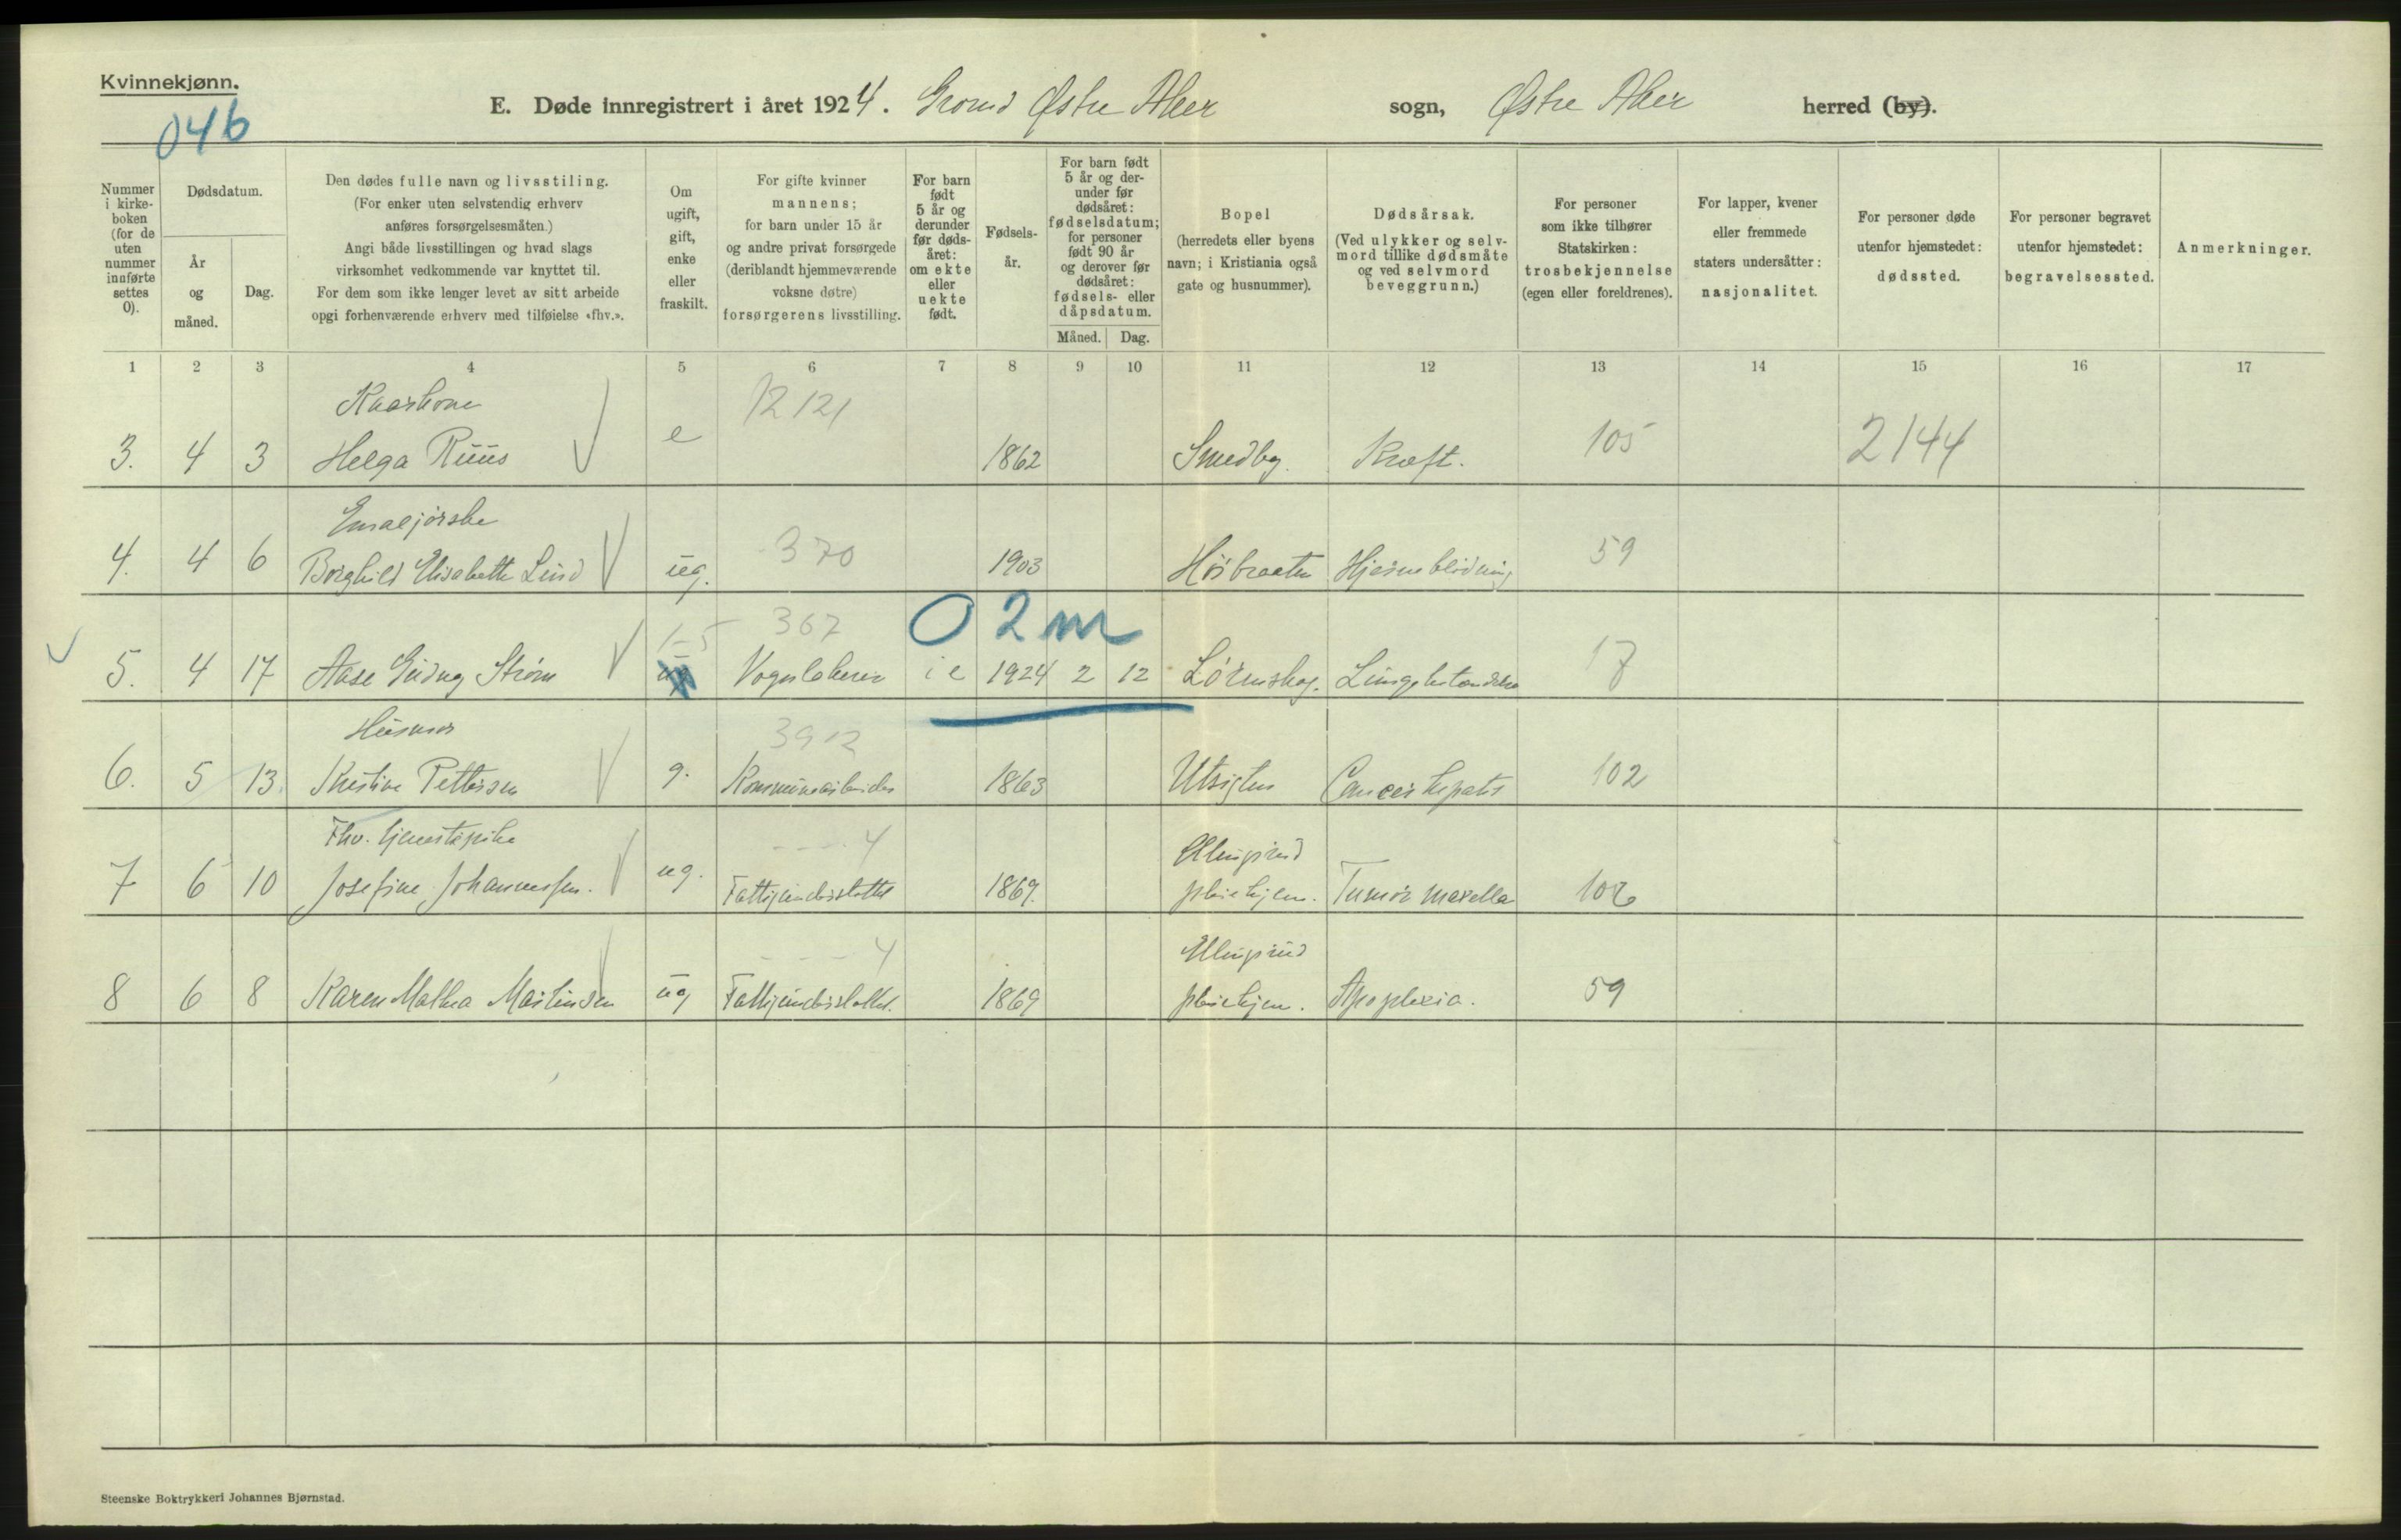 Kvinnekjønn.
046
E. Døde innregistrert i året 1924. Grorud Østre Aker sogn, Østre Aker herred (by).
Nummer i kirke- boken (for de uten nummer innførte settes 0).
Dødsdatum.
År og måned.
Dag.
Den dødes fulle navn og livsstiling.
(For enker uten selvstendig erhverv
anføres forsørgelsesmåten.)
Angi både livsstillingen og hvad slags
virksomhet vedkommende var knyttet til.
For dem som ikke lenger levet av sitt arbeide
opgi forhenværende erhverv med tilføielse «fhv.».
Om ugift, gift, enke eller fraskilt.
For gifte kvinner
mannens;
for barn under 15 år
og andre privat forsørgede
(deriblandt hjemmeværende
voksne døtre)
forsørgerens livsstilling.
For barn født 5 år og derunder før døds- året: om ekte eller uekte født.
Fødsels- år.
For barn født
5 år og der-
under før
dødsåret:
fødselsdatum;
for personer
født 90 år
og derover før
dødsåret:
fødsels- eller
dåpsdatum.
Måned. Dag.
Bopel
(herredets eller byens
navn; i Kristiania også
gate og husnummer).
Dødsårsak.
(Ved ulykker og selv-
mord tillike dødsmåte
og ved selvmord
beveggrunn.)
For personer
som ikke tilhører
Statskirken:
trosbekjennelse
(egen eller foreldrenes).
For lapper, kvener
eller fremmede
staters undersåtter:
nasjonalitet.
For personer døde
utenfor hjemstedet:
dødssted.
For personer begravet
utenfor hjemstedet:
begravelsessted.
Anmerkninger.
1 2 3 4 5 6 7 8 9 10 11 12 13 14 15 16 17
12121
3. 4 3 Helga Ruus e 1862 Smedby. Kræft. 105 2144
370
4. 4 6 Borghild Elisabeth Lund ug. 1903 Høibraaten Hjerneblødning 59
1-5 367 0 2 m
5. 4 17 Aase Gudny Strøm ug Vognlakerer ie 1924 2 12 Lørenskog. Lungebetændelse 17
Husmor 3912
6. 5 13. Kristine Pettersen g. Kommunearbeider 1863 Utsigten Cancer hepatis 102
Fhv. tjenestepike 4 Ellingsrud
7 6 10 Josefine Johannessen. ug. Fattigunderstøttet 1869. pleiehjem. Tumor maxella 102
4 Ellingsrud
8 6 8 Karen Mathea Martinsen ug Fattigunderstøttet. 1869 pleiehjem. Apoplexia. 59
Steenske Boktrykkeri Johannes Bjørnstad.